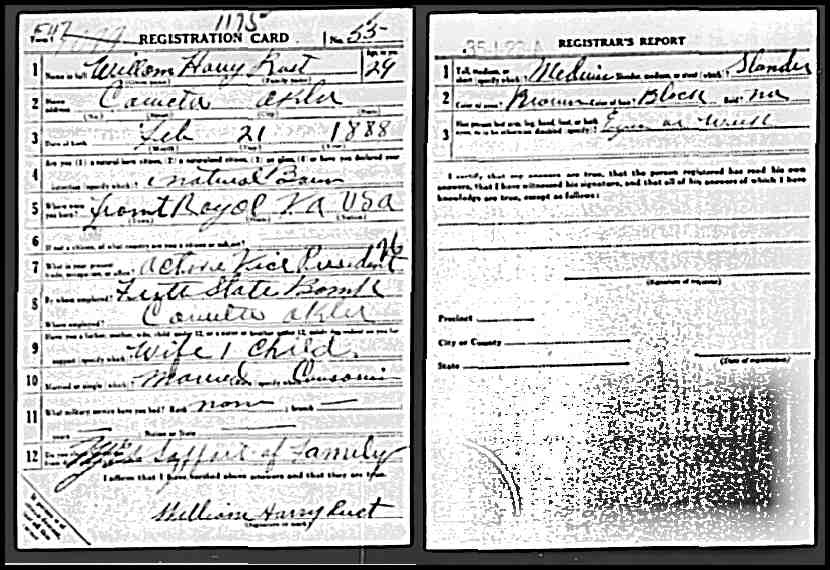 1175
REGISTRATION CARD No. 55
1 Name in full William Harry Rust Age, in yrs. 29
2 Home address Coweta Okla
3 Date of birth Feb 21 1888
4 Are you (1) a natural born citizen, (2) a naturalized citizen, (3) an alien, (4) or have you declared your
intention (specify which)? natural Born
5 Where were you born? Front Royal Va USA
6 If not a citizen, of what country are you a citizen or subject?
7 What is your present trade, occupation, or office? Active Vice President
8 By whom employed? State Bank
Where employed? Coweta Okla
9 Have you a father, mother, wife, child under 12, or a sister or brother under 12, solely dependent on you for
support (specify which)? Wife 1 Child
10 Married or single (which)? Married Race (specify which)?
11 What military service have you had? Rank none ; branch —
years — ; Nation or State —
12 Support of Family
I affirm that I have verified above answers and that they are true.
William Harry Rust
(Signature or mark)
REGISTRAR'S REPORT
1 Tall, medium, or short (specify which)? Medium Slender, medium, or stout (which)? Slender
2 Color of eyes? Brown Color of hair? Black Bald? no
3 Has person lost arm, leg, hand, foot, or both eyes, or is he otherwise disabled (specify)?
I certify that my answers are true, that the person registered has read his own
answers, that I have witnessed his signature, and that all of his answers of which I have
knowledge are true, except as follows:
(Signature of registrar)
Precinct
City or County
State
(Date of registration)